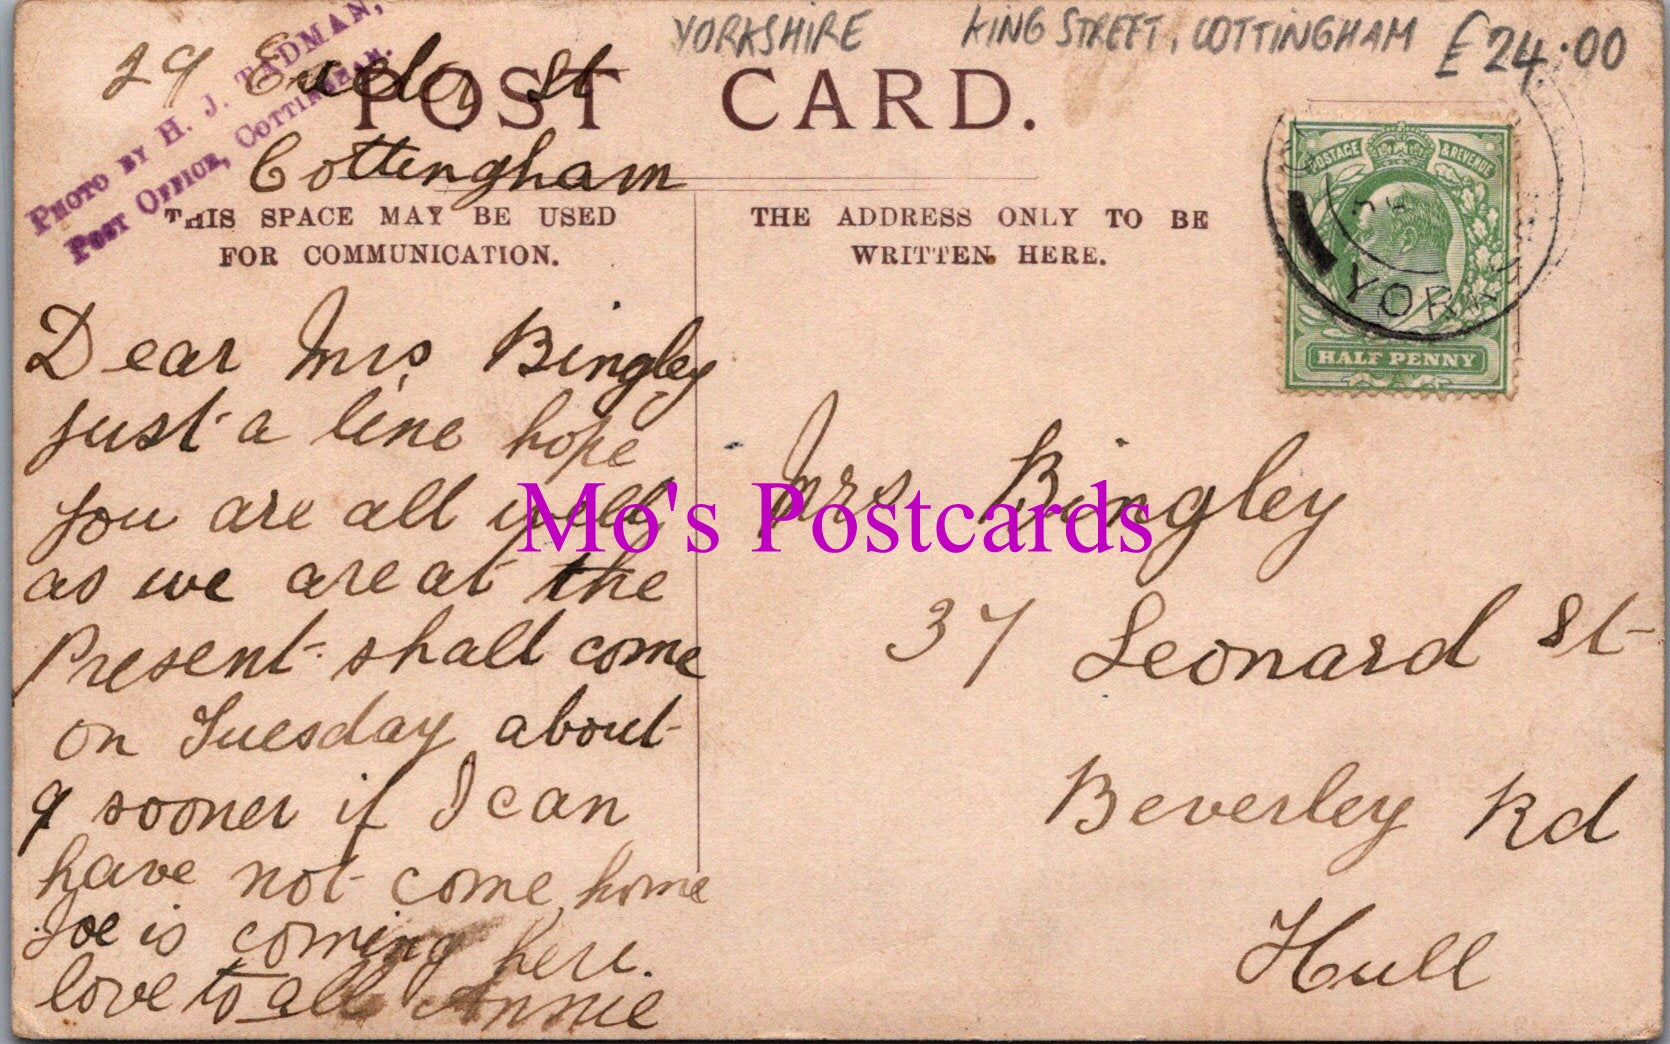 YORKSHIRE KING STREET, COTTINGHAM £24.00
PHOTO BY H. J. TADMAN,
POST OFFICE, COTTINGHAM.
29 St
Cottingham
POST CARD.
THIS SPACE MAY BE USED
FOR COMMUNICATION.
THE ADDRESS ONLY TO BE
WRITTEN HERE.
POSTAGE & REVENUE
HALF PENNY
YORKS
Dear Mrs Bingley
just a line hope
you are all well
as we are at the
Present shall come
on Tuesday about
9 sooner if I can
have not come home
Joe is coming here.
love to all Annie
Mrs Bingley
37 Leonard St
Beverley Rd
Hull
Mo's Postcards